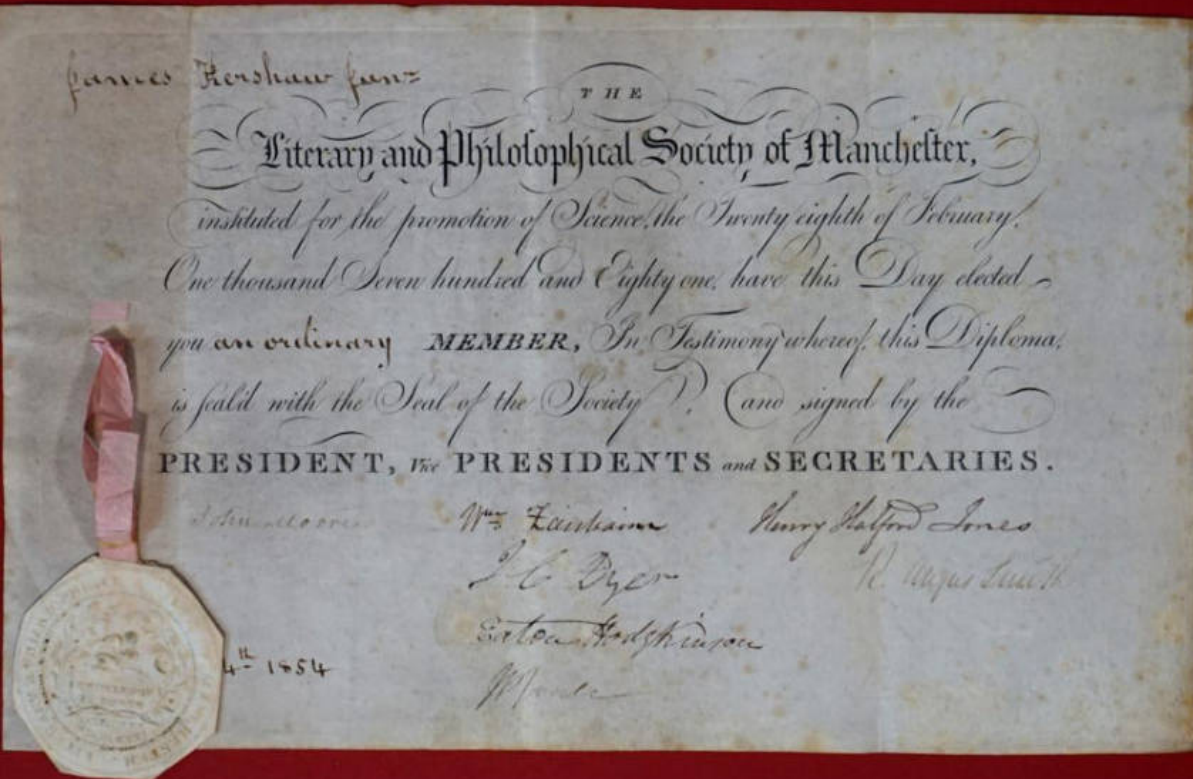 James Kershaw Junr
THE
Literary and Philosophical Society of Manchester,
instituted for the promotion of Science, the Twenty eighth of February,
One thousand Seven hundred and Eighty one, have this Day elected
you an ordinary MEMBER, In Testimony whereof, this Diploma,
is seal'd with the Seal of the Society, and signed by the
PRESIDENT, Vice PRESIDENTS and SECRETARIES.
John Moore Wm Fairbairn Henry Halford Jones
J C Dyer R. Angus Smith
Eaton Hodgkinson
4th 1854